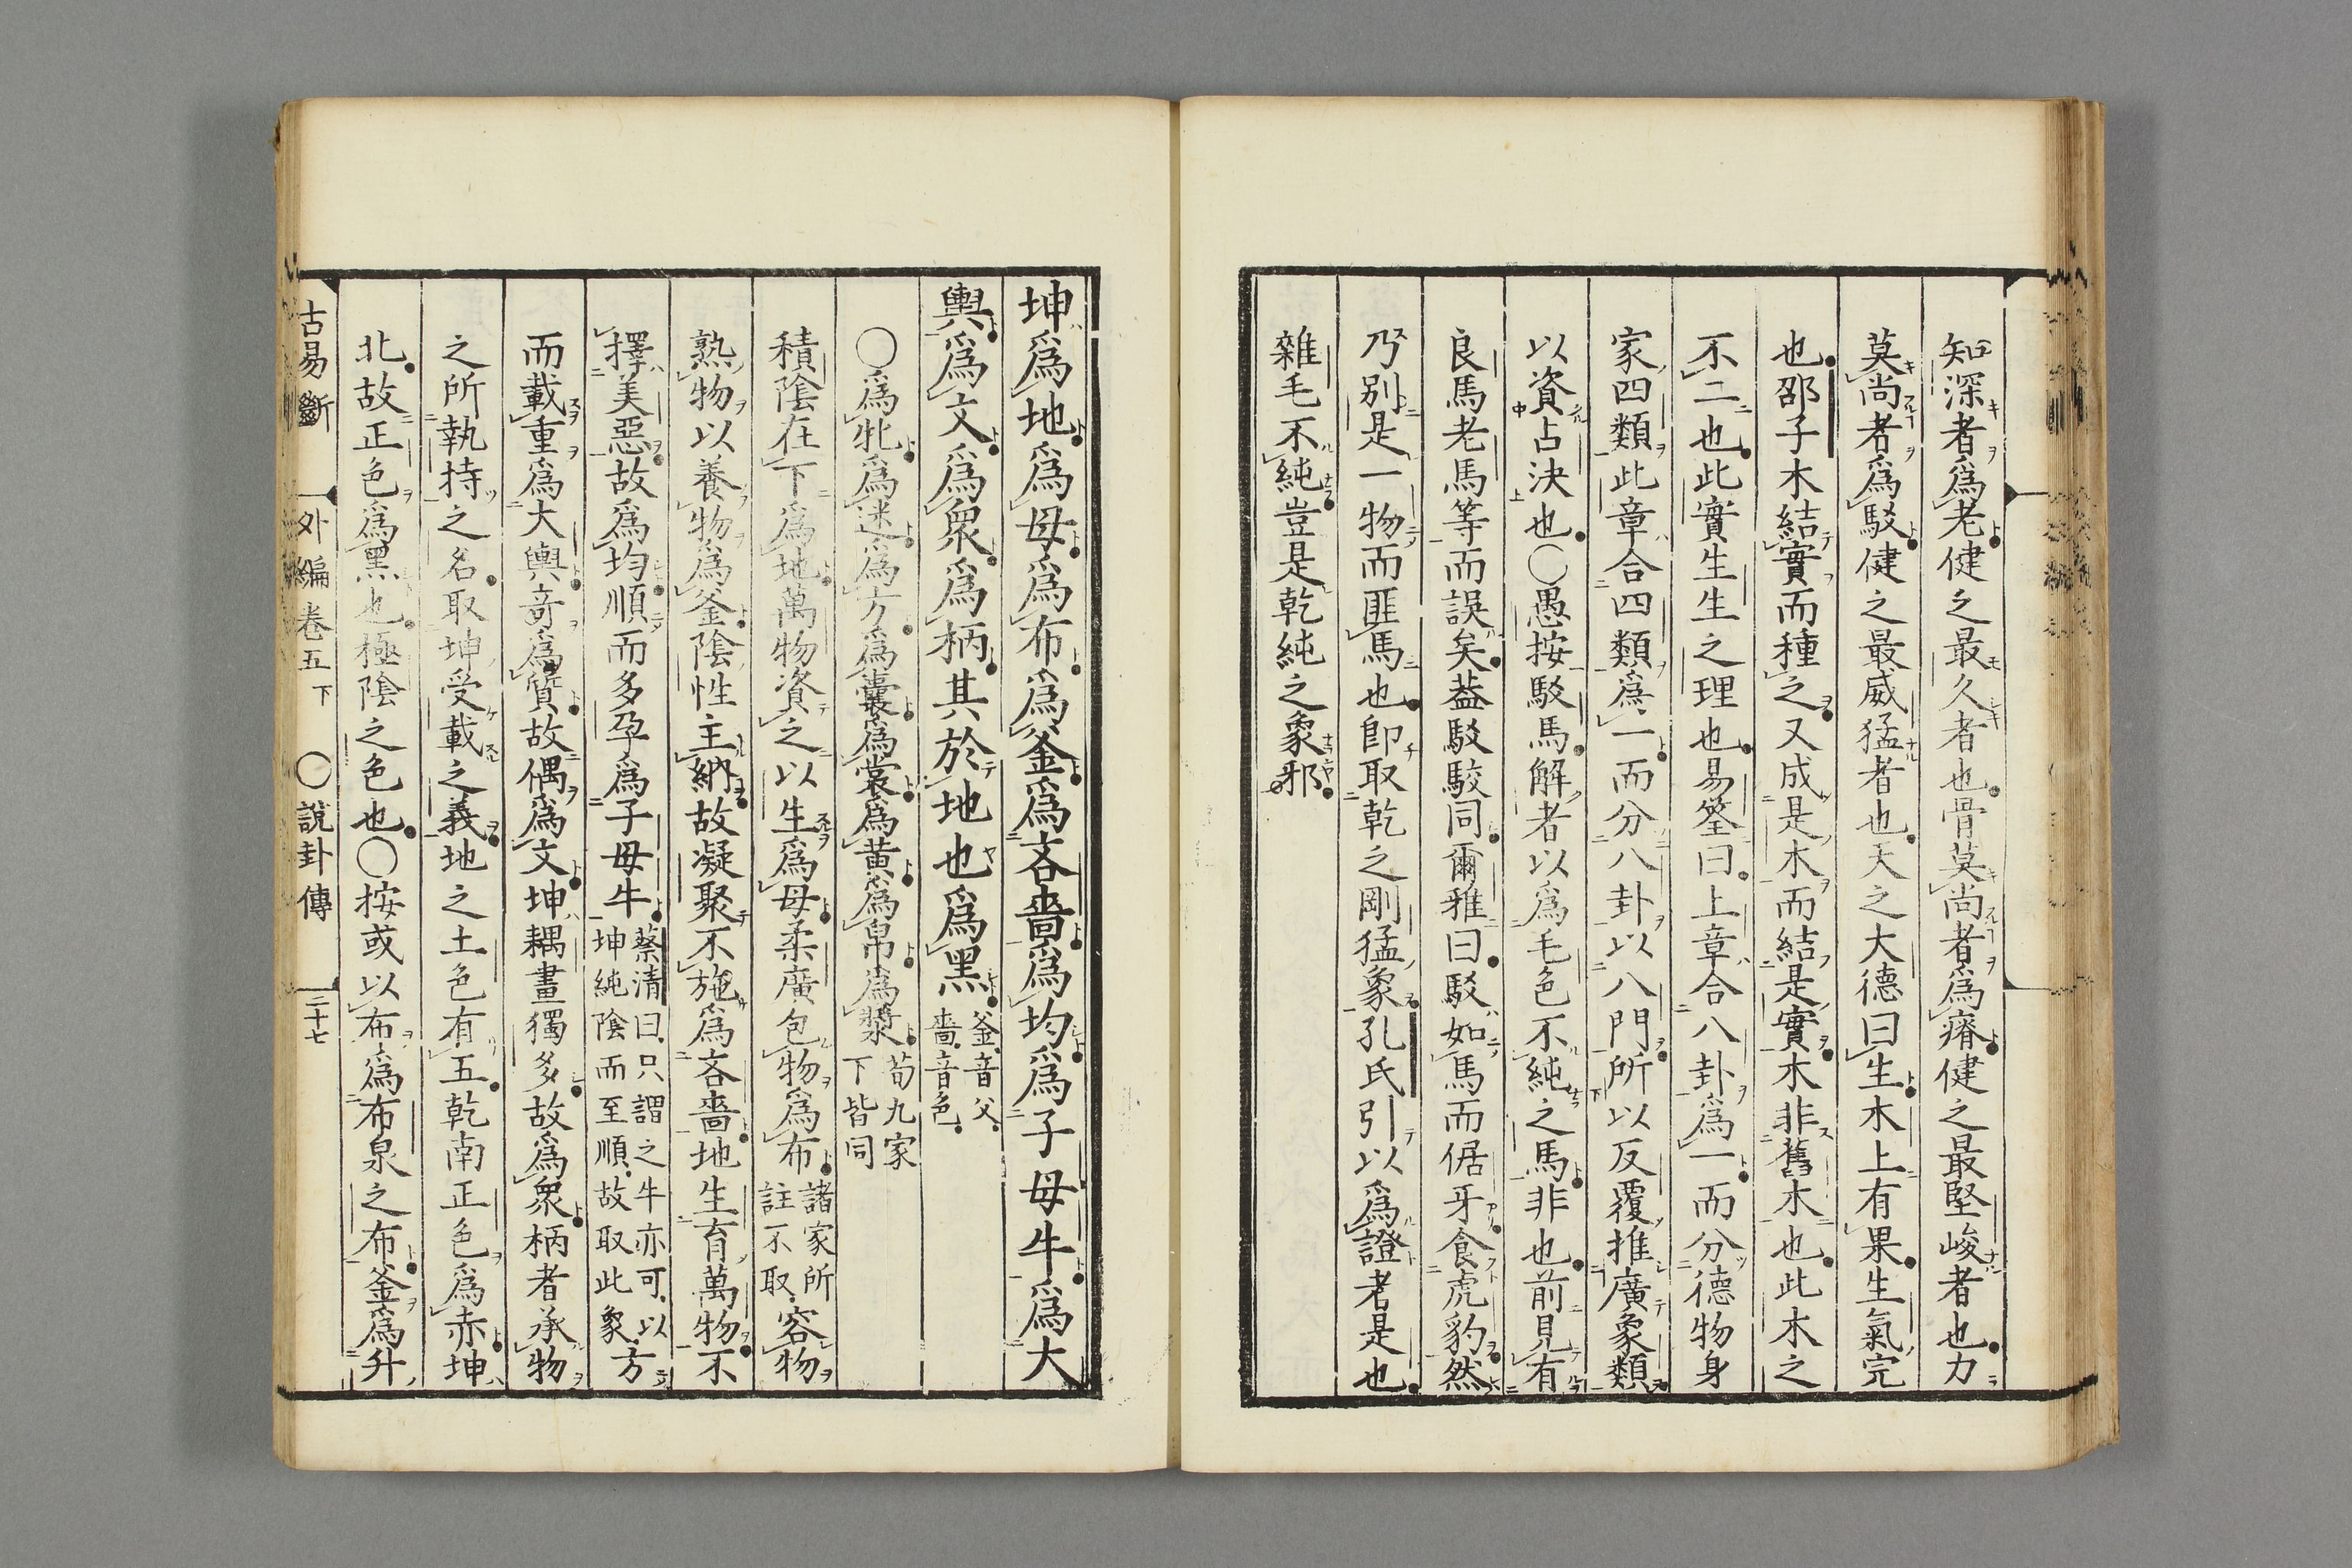 知深者爲老健之最久者也骨莫尚者爲瘠健之最堅峻者也力
莫尚者爲駁健之最威猛者也天之大德曰生木上有果生氣完
也邵子木結實而種之又成是木而結是實木非舊木也此木之
不二也此實生生之理也易筌曰上章合八卦爲一而分德物身
家四類此章合四類爲一而分八卦以八門所以反覆推廣象類
以資占決也○愚按駁馬解者以爲毛色不純之馬非也前見有
良馬老馬等而誤矣葢駁駮同爾雅曰駁如馬而倨牙食虎豹然
乃別是一物而匪馬也卽取乾之剛猛象孔氏引以爲證者是也
雜毛不純豈是乾純之象邪
坤爲地爲母爲布爲釜爲吝嗇爲均爲子母牛爲大
輿爲文爲衆爲柄其於地也爲黑釜音父嗇音色
○爲牝爲迷爲方爲囊爲裳爲黃爲帛爲漿荀九家下皆同
積陰在下爲地萬物資之以生爲母柔廣包物爲布諸家所註不取容物
熟物以養物爲釜陰性主納故凝聚不施爲吝嗇地生育萬物不
擇美惡故爲均順而多孕爲子母牛蔡清曰只謂之牛亦可以坤純陰而至順故取此象方
而載重爲大輿奇爲質故偶爲文坤耦畫獨多故爲衆柄者承物
之所執持之名取坤受載之義地之土色有五乾南正色爲赤坤
北故正色爲黑也極陰之色也○按或以布爲布泉之布釜爲升
古易斷 外編卷五下 ○說卦傳 二十七